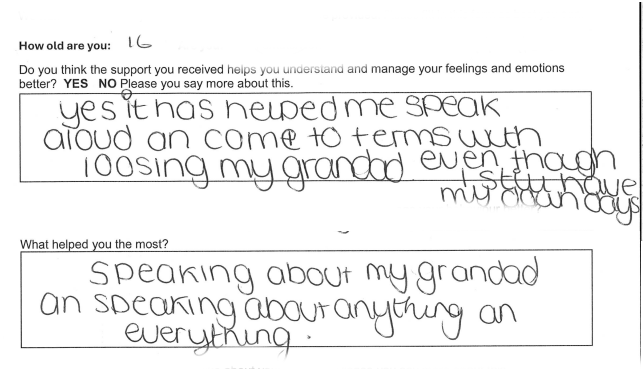 How old are you: 16
Do you think the support you received helps you understand and manage your feelings and emotions
better? YES NO Please you say more about this.
yes it has helped me speak
aloud an come to terms with
loosing my grandad even though
I still have
my down days
What helped you the most?
Speaking about my grandad
an speaking about anything an
everything.